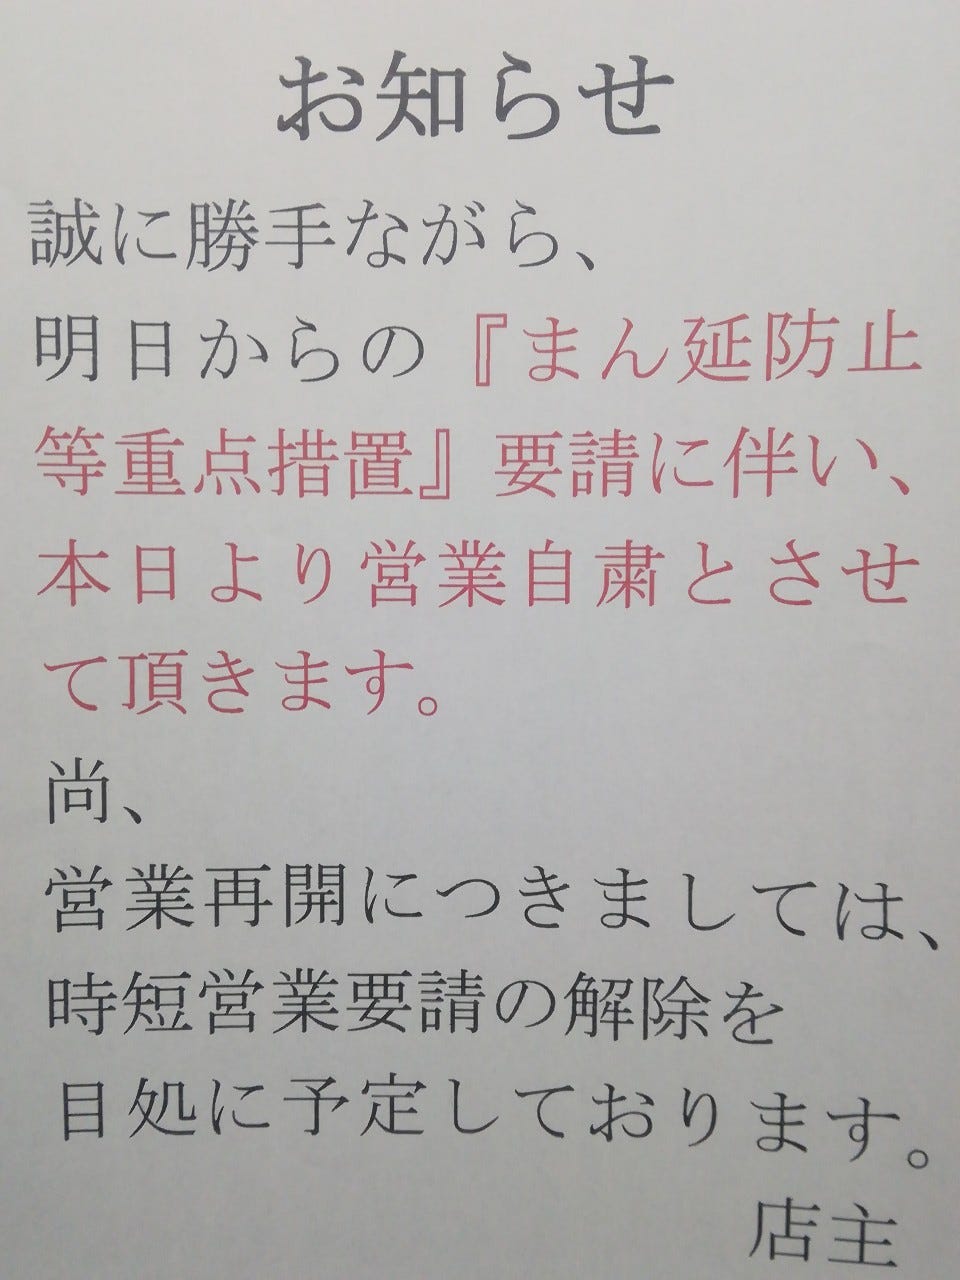 お知らせ
誠に勝手ながら、
明日からの『まん延防止
等重点措置』要請に伴い、
本日より営業自粛とさせ
て頂きます。
尚、
営業再開につきましては、
時短営業要請の解除を
目処に予定しております。
店主